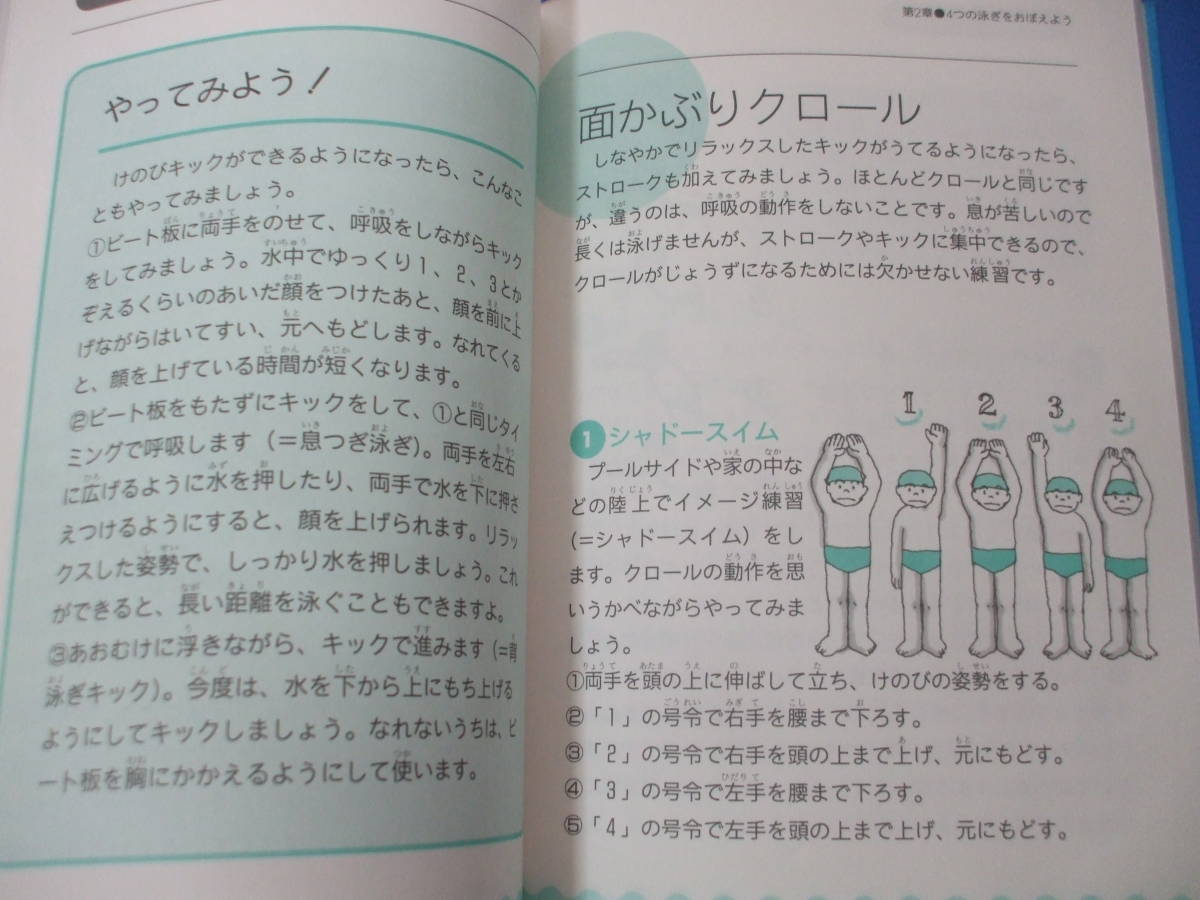 やってみよう！
けのびキックができるようになったら、こんなこ
ともやってみましょう。
①ビート板に両手をのせて、呼吸をしながらキック
をしてみましょう。水中でゆっくり1、2、3とか
ぞえるくらいのあいだ顔をつけたあと、顔を前に上
げながらはいてすい、元へもどします。なれてくる
と、顔を上げている時間が短くなります。
②ビート板をもたずにキックをして、①と同じタイ
ミングで呼吸します（＝息つぎ泳ぎ）。両手を左右
に広げるように水を押したり、両手で水を下に押さ
えつけるようにすると、顔を上げられます。リラッ
クスした姿勢で、しっかり水を押しましょう。これ
ができると、長い距離を泳ぐこともできますよ。
③あおむけに浮きながら、キックで進みます（＝背
泳ぎキック）。今度は、水を下から上にもち上げる
ようにしてキックしましょう。なれないうちは、ビ
ート板を胸にかかえるようにして使います。
第2章●4つの泳ぎをおぼえよう
面かぶりクロール
しなやかでリラックスしたキックがうてるようになったら、
ストロークも加えてみましょう。ほとんどクロールと同じです
が、違うのは、呼吸の動作をしないことです。息が苦しいので
長くは泳げませんが、ストロークやキックに集中できるので、
クロールがじょうずになるためには欠かせない練習です。
1 2 3 4
1 シャドースイム
プールサイドや家の中な
どの陸上でイメージ練習
（＝シャドースイム）をし
ます。クロールの動作を思
いうかべながらやってみま
しょう。
①両手を頭の上に伸ばして立ち、けのびの姿勢をする。
②「1」の号令で右手を腰まで下ろす。
③「2」の号令で右手を頭の上まで上げ、元にもどす。
④「3」の号令で左手を腰まで下ろす。
⑤「4」の号令で左手を頭の上まで上げ、元にもどす。